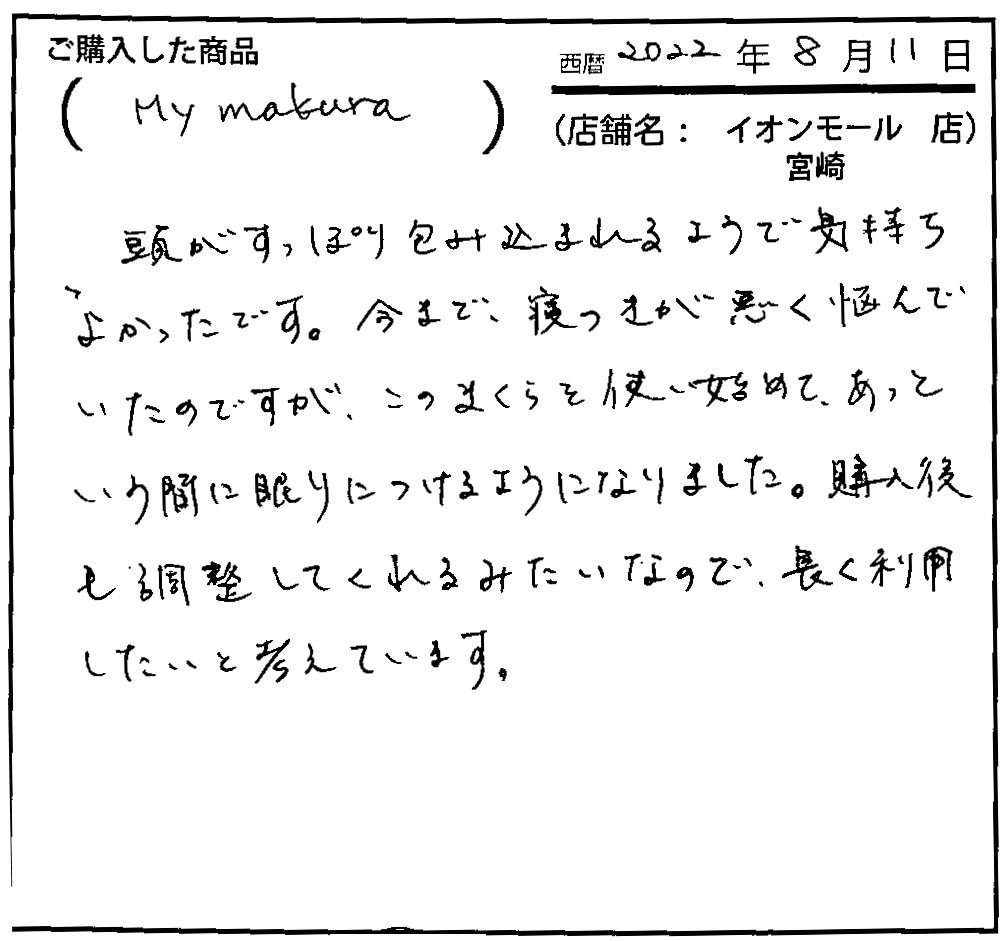 ご購入した商品
西暦 2022 年 8 月 11 日
( My makura )
(店舗名： イオンモール 店)
宮崎
頭がすっぽり包み込まれるようで気持ち
よかったです。今まで、寝つきが悪く悩んで
いたのですが、このまくらを使い始めて、あっと
いう間に眠りにつけるようになりました。購入後
も調整してくれるみたいなので、長く利用
したいと考えています。